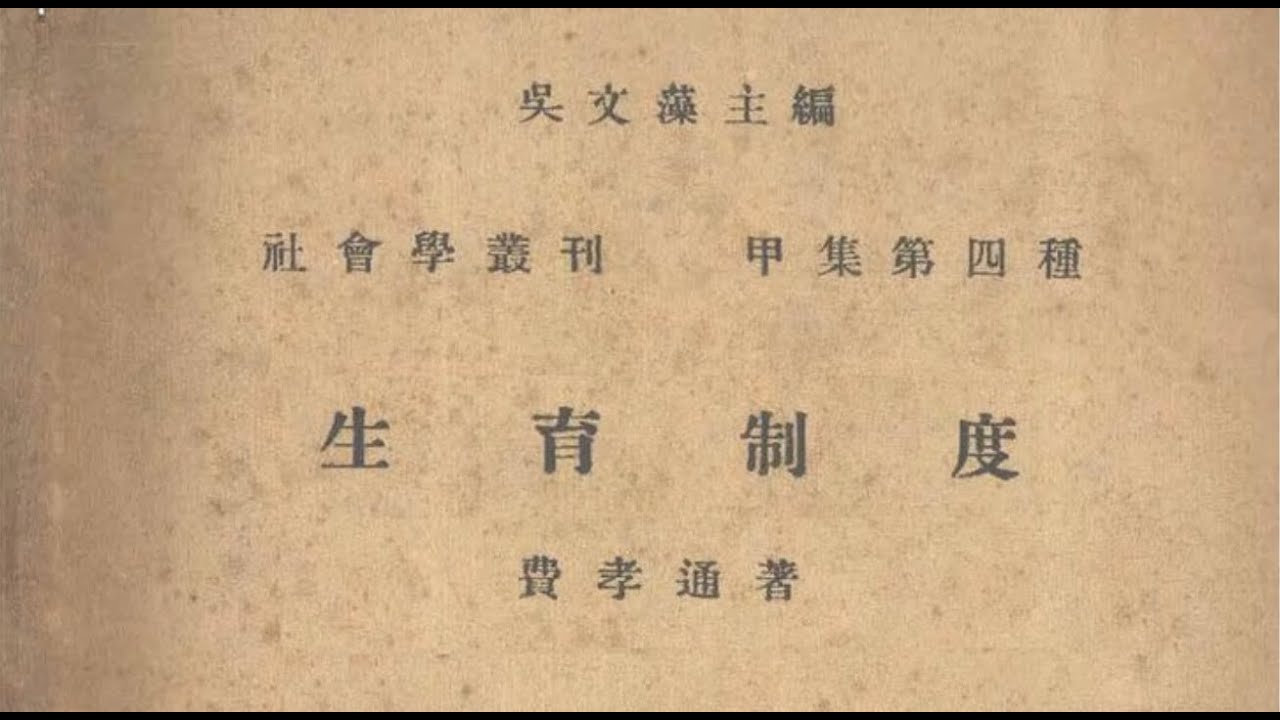 吳文藻主編
社會學叢刊　甲集第四種
生育制度
費孝通著